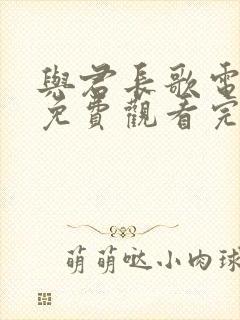 與君長歌電
免費觀看完
萌萌哒小肉球